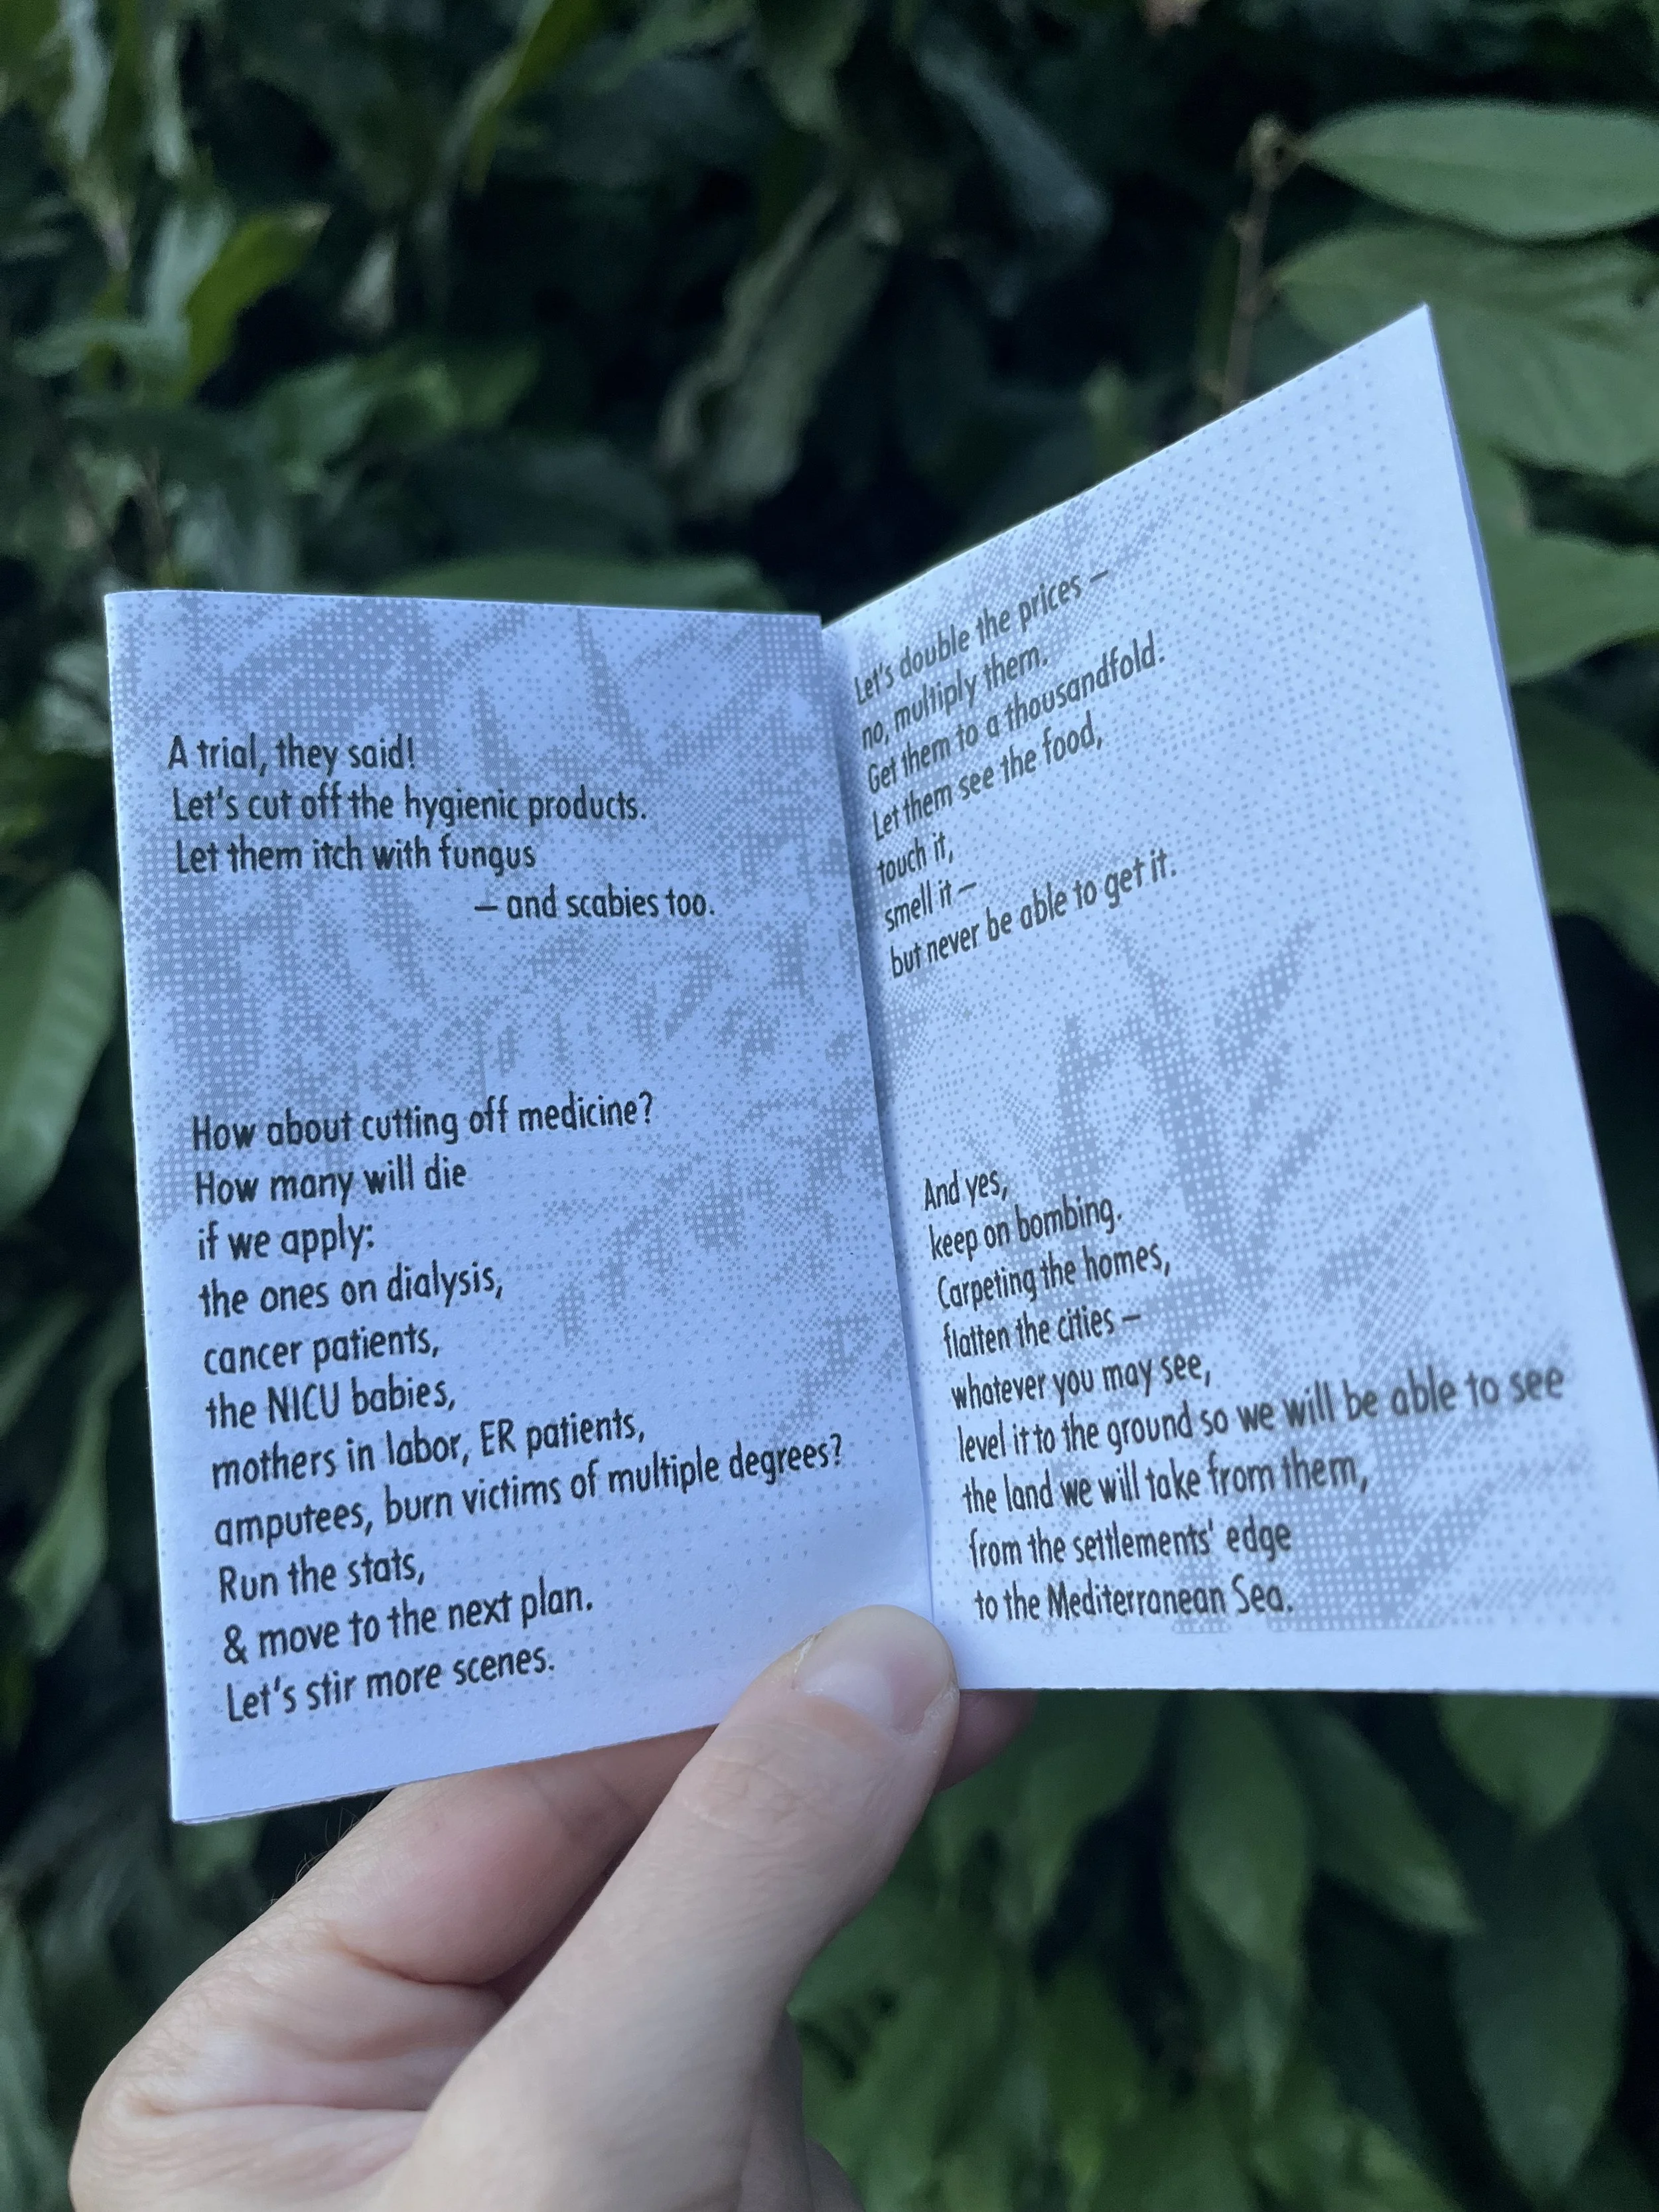 A trial, they said!
Let's cut off the hygienic products.
Let them itch with fungus
– and scabies too.
How about cutting off medicine?
How many will die
if we apply:
the ones on dialysis,
cancer patients,
the NICU babies,
mothers in labor, ER patients,
amputees, burn victims of multiple degrees?
Run the stats,
& move to the next plan.
Let's stir more scenes.
Let's double the prices –
no, multiply them.
Get them to a thousandfold.
Let them see the food,
touch it,
smell it –
but never be able to get it.
And yes,
keep on bombing.
Carpeting the homes,
flatten the cities –
whatever you may see,
level it to the ground so we will be able to see
the land we will take from them,
from the settlements' edge
to the Mediterranean Sea.